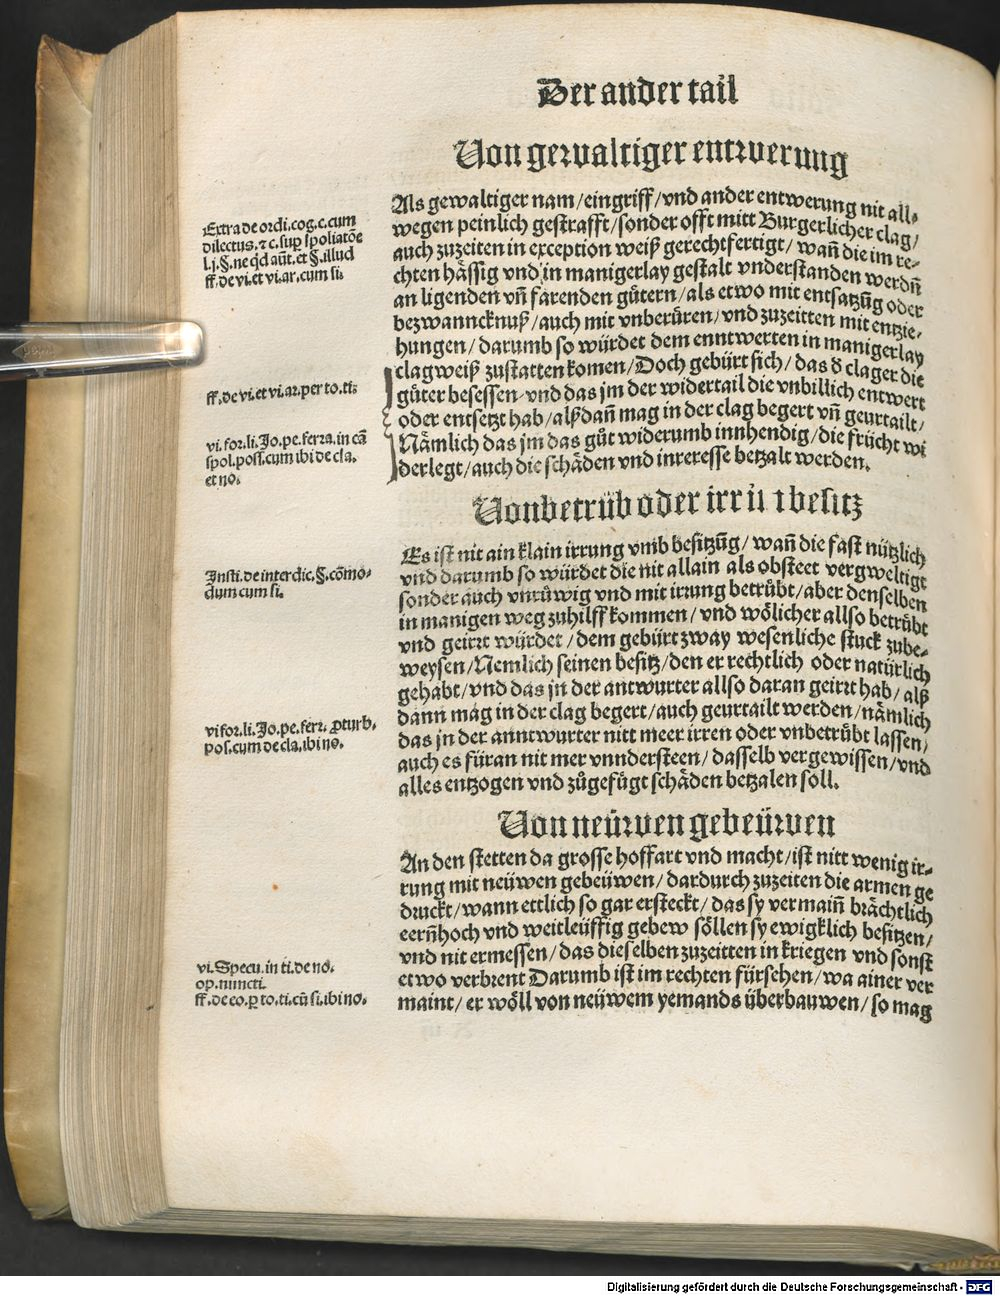 Der ander tail
Von gewaltiger entwerung
Als gewaltiger nam/eingriff/vnd ander entwerung nit all⸗
wegen peinlich gestrafft/sonder offt mitt Burgerlicher clag/
auch zuzeiten in exception weiß gerechtfertigt/wañ die im re⸗
chten hässig vnd in manigerlay gestalt vnderstanden werdñ
an ligenden vñ farenden gůtern/als etwo mit entsatzũg oder
bezwanncknuß/auch mit vnberüren/vnd zuzeitten mit entzie⸗
hungen/darumb so würdet dem enntwerten in manigerlay
clagweiß zustatten komen/Doch gebürt sich/das d clager die
gůter besessen vnd das jm der widertail die vnbillich entwert
oder entsetzt hab/alßdañ mag in der clag begert vñ geurtailt/
Nämlich das jm das gůt widerumb innhendig/die frücht wi
derlegt/auch die schäden vnd interesse betzalt werden.
Extra de ordi. cog. c. cum
dilectus. ⁊ c. sup spoliatõe
l. j. §. ne qd aũt. et §. illud
ff. de vi. et vi. ar. cum si.
ff. de vi. et vi. ar. per to. ti.
vi. for. li. Jo. pe. ferra. in cã
spol. poss. cum ibi de cla.
et no.
Von betrüb oder irr besitz
Es ist nit ain klain irrung vmb besitzũg/wañ die fast nützlich
vnd darumb so würdet die nit allain als obsteet vergweltigt
sonder auch vnrüwig vnd mit irrung betrübt/aber denselben
in manigen weg zuhilff kommen/vnd wölicher allso betrübt
vnd geirrt würdet/dem gebürt zway wesenliche stuck zube⸗
weysen/Nemlich seinen besitz/den er rechtlich oder natürlich
gehabt/vnd das jn der antwurter allso daran geirrt hab/alß
dann mag in der clag begert/auch geurtailt werden/nämlich
das jn der anntwurter nitt meer irren oder vnbetrübt lassen/
auch es füran nit mer vnndersteen/dasselb vergewissen/vnd
alles entzogen vnd zůgefügt schäden betzalen soll.
Insti. de interdic. §. cõmo⸗
dum cum si.
vi for. li. Jo. pe. ferr. ꝓturb.
pos. cum de cla. ibi no.
Von neüwen gebeüwen
An den stetten da grosse hoffart vnd macht/ist nitt wenig ir⸗
rung mit neüwen gebeüwen/dardurch zuzeiten die armen ge
druckt/wann ettlich so gar ersteckt/das sy vermaiñ brächtlich
eerñhoch vnd weitleüffig gebew söllen sy ewigklich besitzen/
vnd nit ermessen/das dieselben zuzeitten in kriegen vnd sonst
etwo verbrent Darumb ist im rechten fürsehen/wa ainer ver
maint/er wöll von neüwem yemands überbauwen/so mag
vi. Specu. in ti. de no.
op. nuncti.
ff. de eo. ꝑ to. ti. cũ si. ibi no.
Digitalisierung gefördert durch die Deutsche Forschungsgemeinschaft - DFG